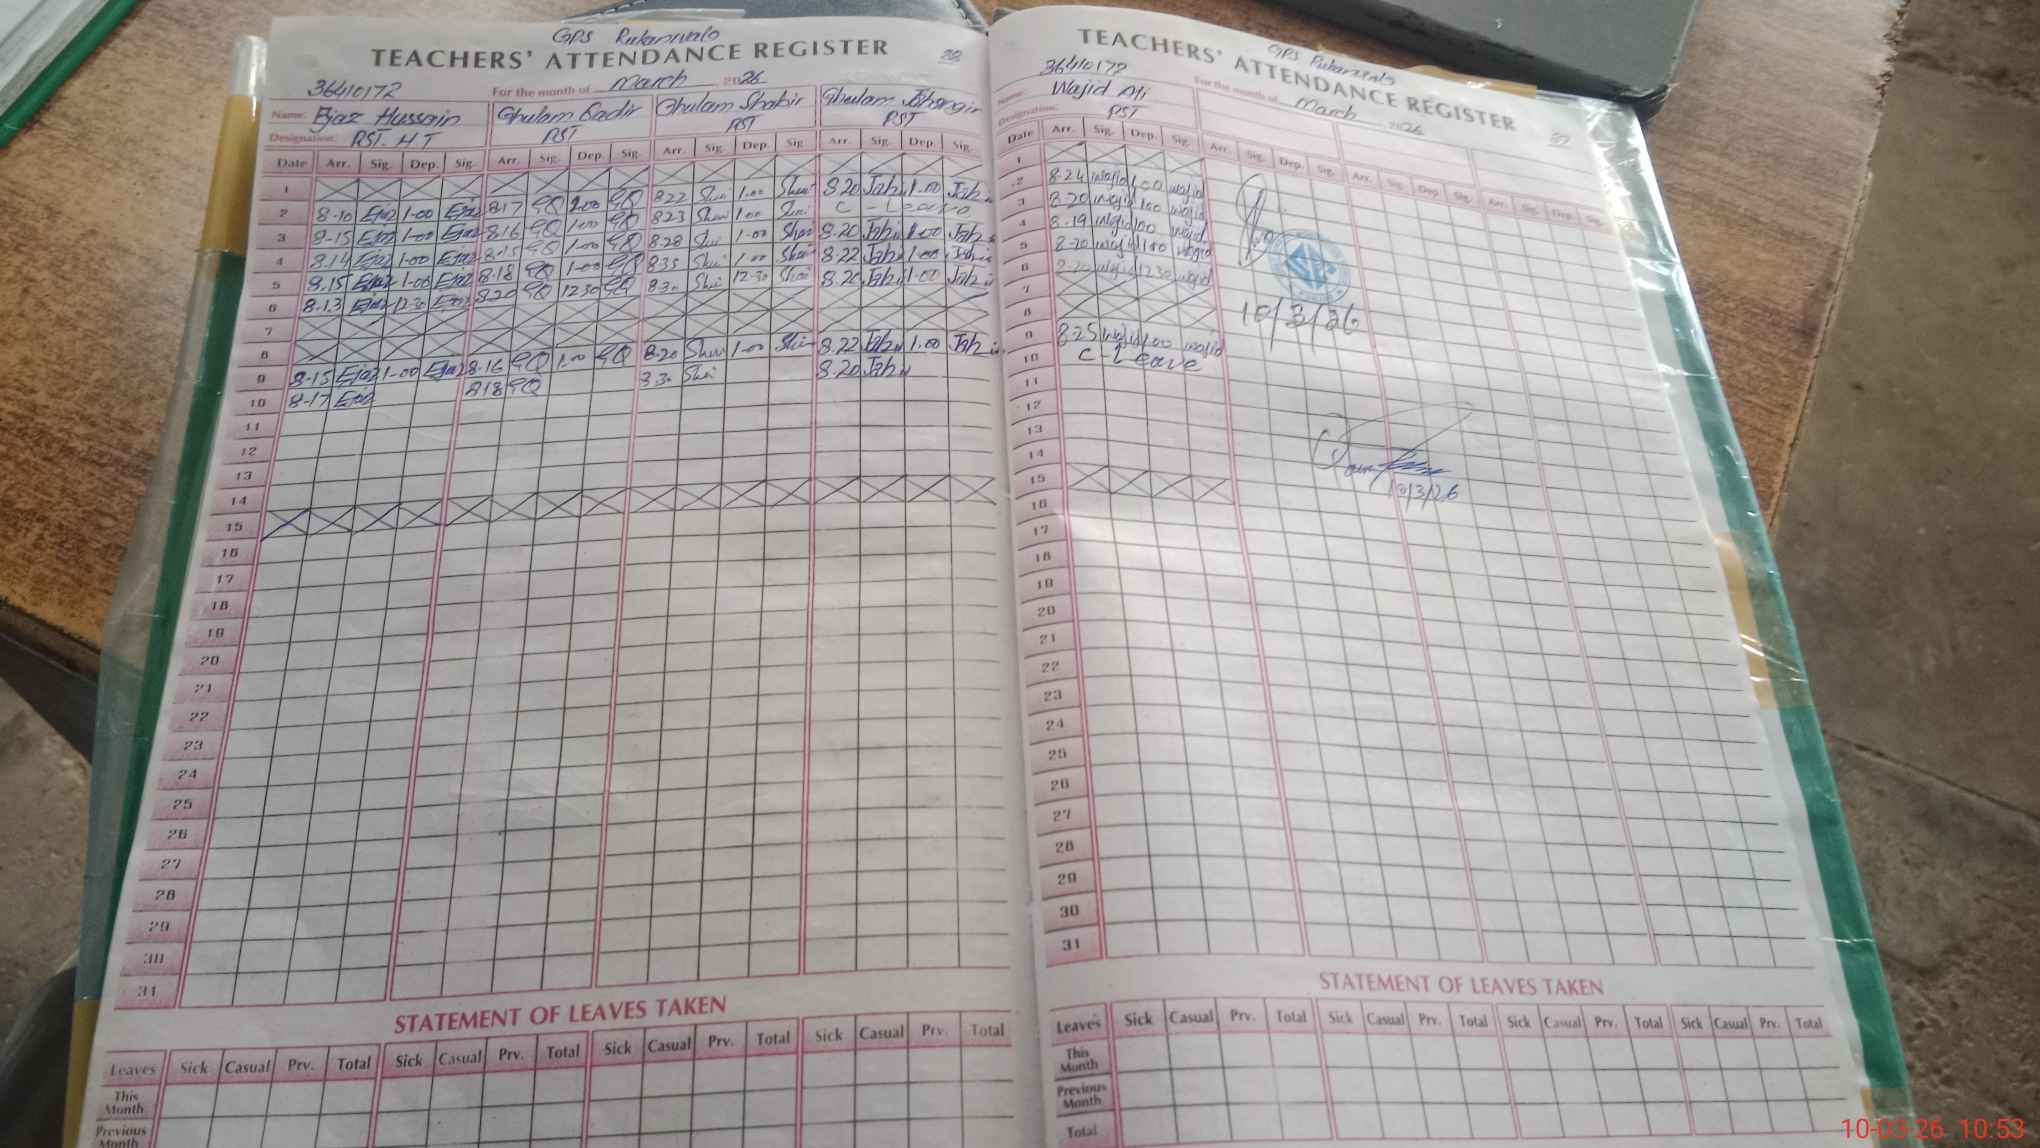 GPS Rukanwala
TEACHERS' ATTENDANCE REGISTER
36410172 For the month of March 2026
Name: Ejaz Hussain Ghulam Qadir Ghulam Shabir Ghulam Jhangir
Designation: PST. H T PST PST PST
Date Arr. Sig. Dep. Sig. Arr. Sig. Dep. Sig. Arr. Sig. Dep. Sig. Arr. Sig. Dep. Sig.
1
2 8-10 Ejaz 1-00 Ejaz 8.17 GQ 1.00 GQ 8.22 1.00 8.20 1.00
3 8-15 Ejaz 1-00 Ejaz 8.16 GQ 1.00 GQ 8.23 1.00 C - Leave
4 8.14 Ejaz 1.00 Ejaz 8.15 GQ 1.00 GQ 8.28 1.00 8.20 1.00
5 8.15 Ejaz 1-00 Ejaz 8.18 GQ 1.00 GQ 8.35 1.00 8.22 1.00
6 8.13 Ejaz 12.30 Ejaz 8.20 GQ 12.30 GQ 8.30 12-30 8.20 1.00
7
8
9 8-15 Ejaz 1-00 Ejaz 8.16 GQ 1.00 GQ 8.20 1.00 8.22 1.00
10 8-17 Ejaz 8.18 GQ 8.30 8.20
11
12
13
14
15
16
17
18
19
20
21
22
23
24
25
26
27
28
29
30
31
STATEMENT OF LEAVES TAKEN
Leaves Sick Casual Prv. Total Sick Casual Prv. Total Sick Casual Prv. Total Sick Casual Prv. Total
This Month
Previous Month
GPS Rukanwala
TEACHERS' ATTENDANCE REGISTER
36410172 For the month of March 2026
Name: Wajid Ali
Designation: PST
Date Arr. Sig. Dep. Sig. Arr. Sig. Dep. Sig. Arr. Sig. Dep. Sig. Arr. Sig. Dep. Sig.
1
2 8-24 wajid 1.00 wajid
3 8-20 wajid 1.00 wajid
4 8-19 wajid 1.00 wajid
5 8-20 wajid 1.00 wajid
6 8-20 wajid 12.30 wajid
7
8
10/3/26
9 8-25 wajid 1.00 wajid
10 C - Leave
11
12
13
14
15
10/3/26
16
17
18
19
20
21
22
23
24
25
26
27
28
29
30
31
STATEMENT OF LEAVES TAKEN
Leaves Sick Casual Prv. Total Sick Casual Prv. Total Sick Casual Prv. Total Sick Casual Prv. Total
This Month
Previous Month
Total
10-03-26 10:53